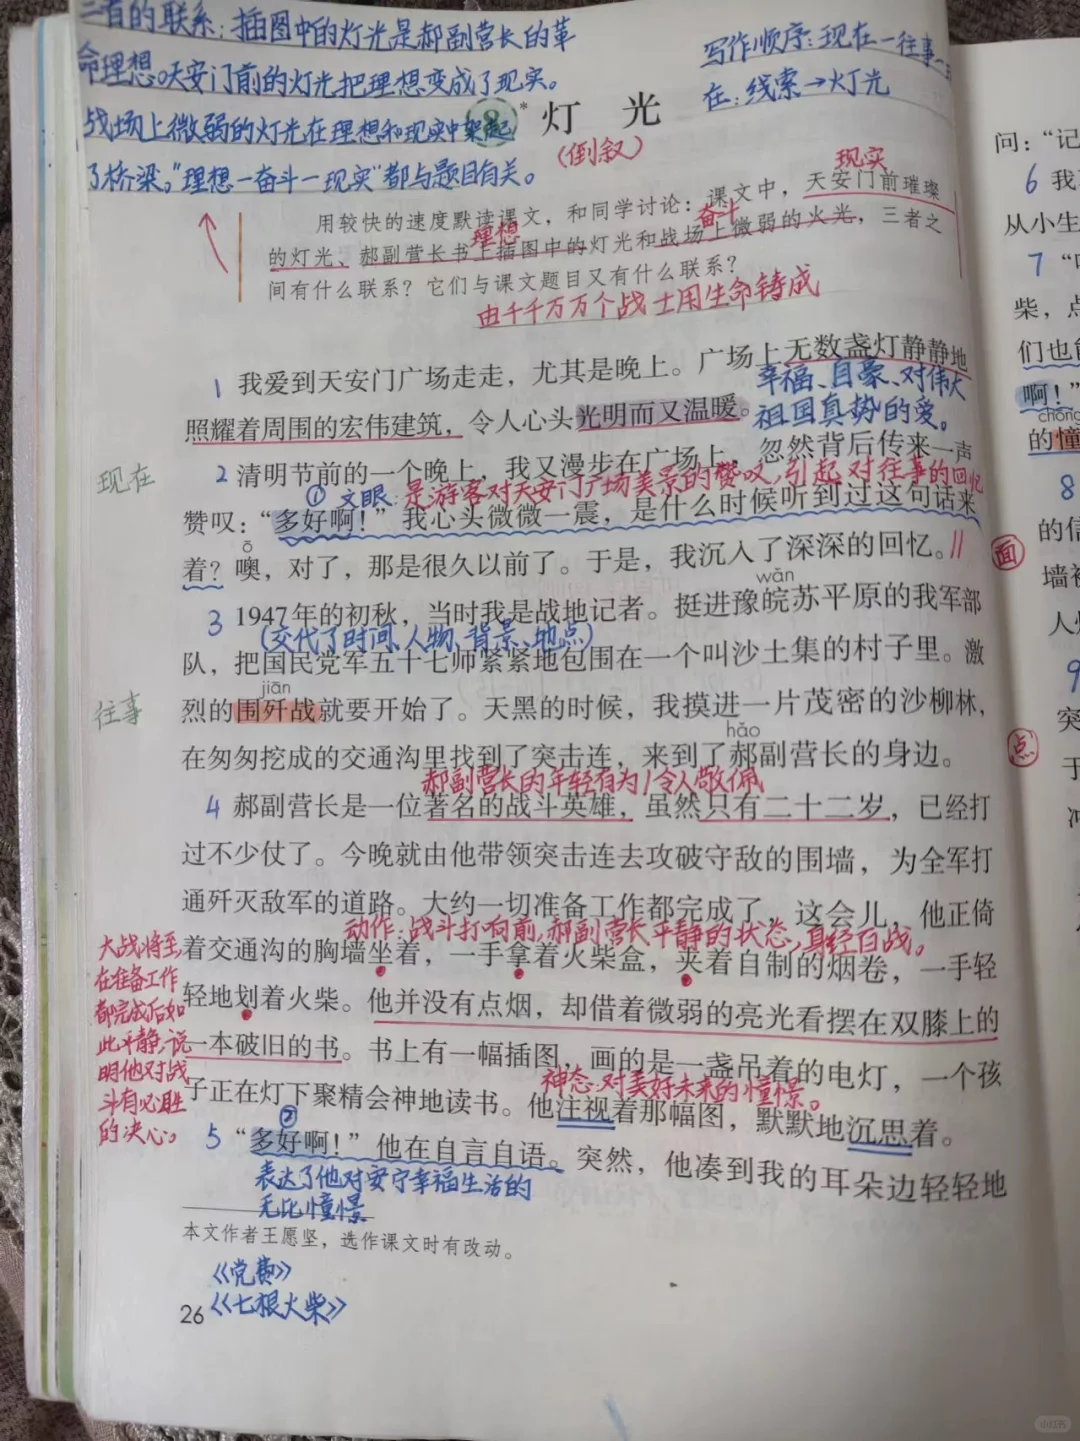 三者的联系:插图中的灯光是郝副营长的革
命理想。天安门前的灯光把理想变成了现实。
战场上微弱的灯光在理想和现实中架起
了桥梁。"理想一奋斗一现实"都与题目有关。
写作顺序:现在一往事一现
在;线索→灯光
8* 灯 光
(倒叙)
现实
用较快的速度默读课文,和同学讨论:课文中,天安门前璀璨
理想
奋斗
的灯光、郝副营长书上插图中的灯光和战场上微弱的火光,三者之
间有什么联系?它们与课文题目又有什么联系?
由千千万万个战士用生命铸成
1 我爱到天安门广场走走,尤其是晚上。广场上无数盏灯静静地
幸福、自豪、对伟大
照耀着周围的宏伟建筑,令人心头光明而又温暖。
祖国真势的爱。
现在
2 清明节前的一个晚上,我又漫步在广场上,忽然背后传来一声
①文眼:是游客对天安门广场美景的赞叹,引起对往事的回忆
赞叹:“多好啊!”我心头微微一震,是什么时候听到过这句话来
ō
着?噢,对了,那是很久以前了。于是,我沉入了深深的回忆。//
wǎn
3 1947年的初秋,当时我是战地记者。挺进豫皖苏平原的我军部
(交代了时间、人物、背景、地点)
队,把国民党军五十七师紧紧地包围在一个叫沙土集的村子里。激
jiān
往事
烈的围歼战就要开始了。天黑的时候,我摸进一片茂密的沙柳林,
hǎo
在匆匆挖成的交通沟里找到了突击连,来到了郝副营长的身边。
郝副营长的年轻有为,令人敬佩
4 郝副营长是一位著名的战斗英雄,虽然只有二十二岁,已经打
过不少仗了。今晚就由他带领突击连去攻破守敌的围墙,为全军打
通歼灭敌军的道路。大约一切准备工作都完成了,这会儿,他正倚
动作:战斗打响前,郝副营长平静的状态,身经百战。
着交通沟的胸墙坐着,一手拿着火柴盒,夹着自制的烟卷,一手轻
轻地划着火柴。他并没有点烟,却借着微弱的亮光看摆在双膝上的
一本破旧的书。书上有一幅插图,画的是一盏吊着的电灯,一个孩
神态:对美好未来的憧憬。
子正在灯下聚精会神地读书。他注视着那幅图,默默地沉思着。
大战将至,
在准备工作
都完成后如
此平静,说
明他对战
斗有必胜
的决心。
②
5 “多好啊!”他在自言自语。突然,他凑到我的耳朵边轻轻地
表达了他对安宁幸福生活的
无比憧憬
本文作者王愿坚,选作课文时有改动。
《党费》
26 《七根火柴》
面
点
问:“记
6 我
从小生
7
柴,点
们也能
啊!”
chōng
的憧
8
的信
墙被
人
9
突
于
冲
小红书